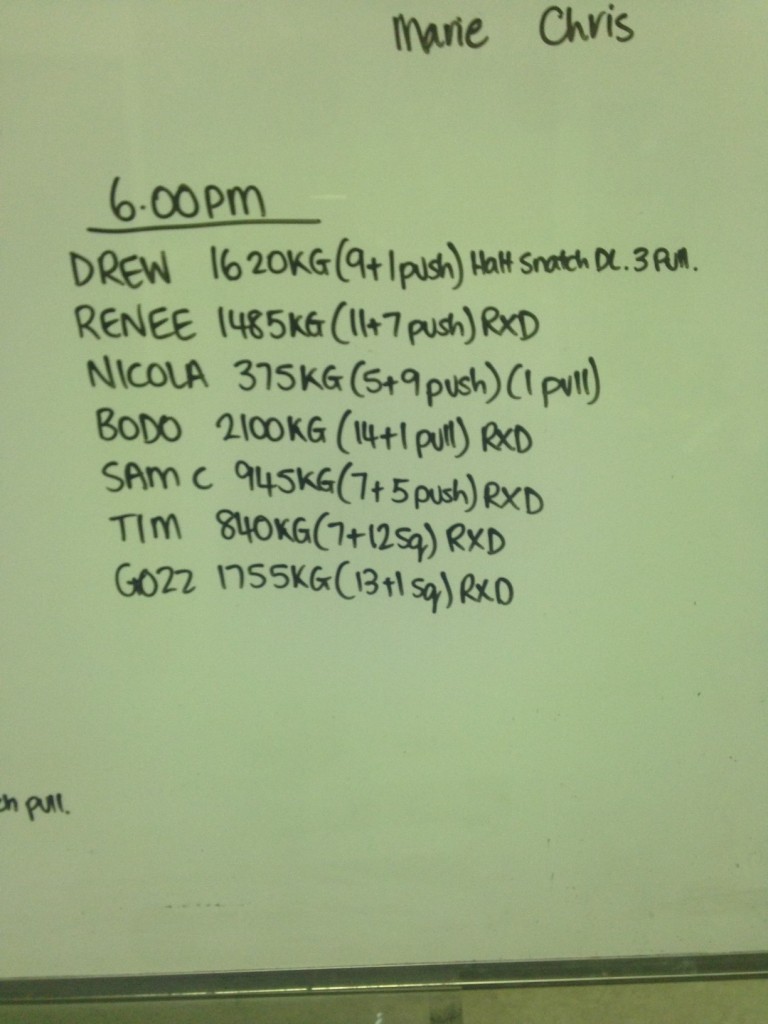 Marie Chris
6.00pm
DREW 1620KG (9+1push) Half Snatch DL. 3 Pull.
RENEE 1485KG (11+7 push) RXD
NICOLA 375KG (5+9push) (1 pull)
BODO 2100KG (14+1 pull) RXD
SAM C 945KG (7+5push) RXD
TIM 840KG (7+12sq) RXD
GOZZ 1755KG (13+1sq) RXD
pull.